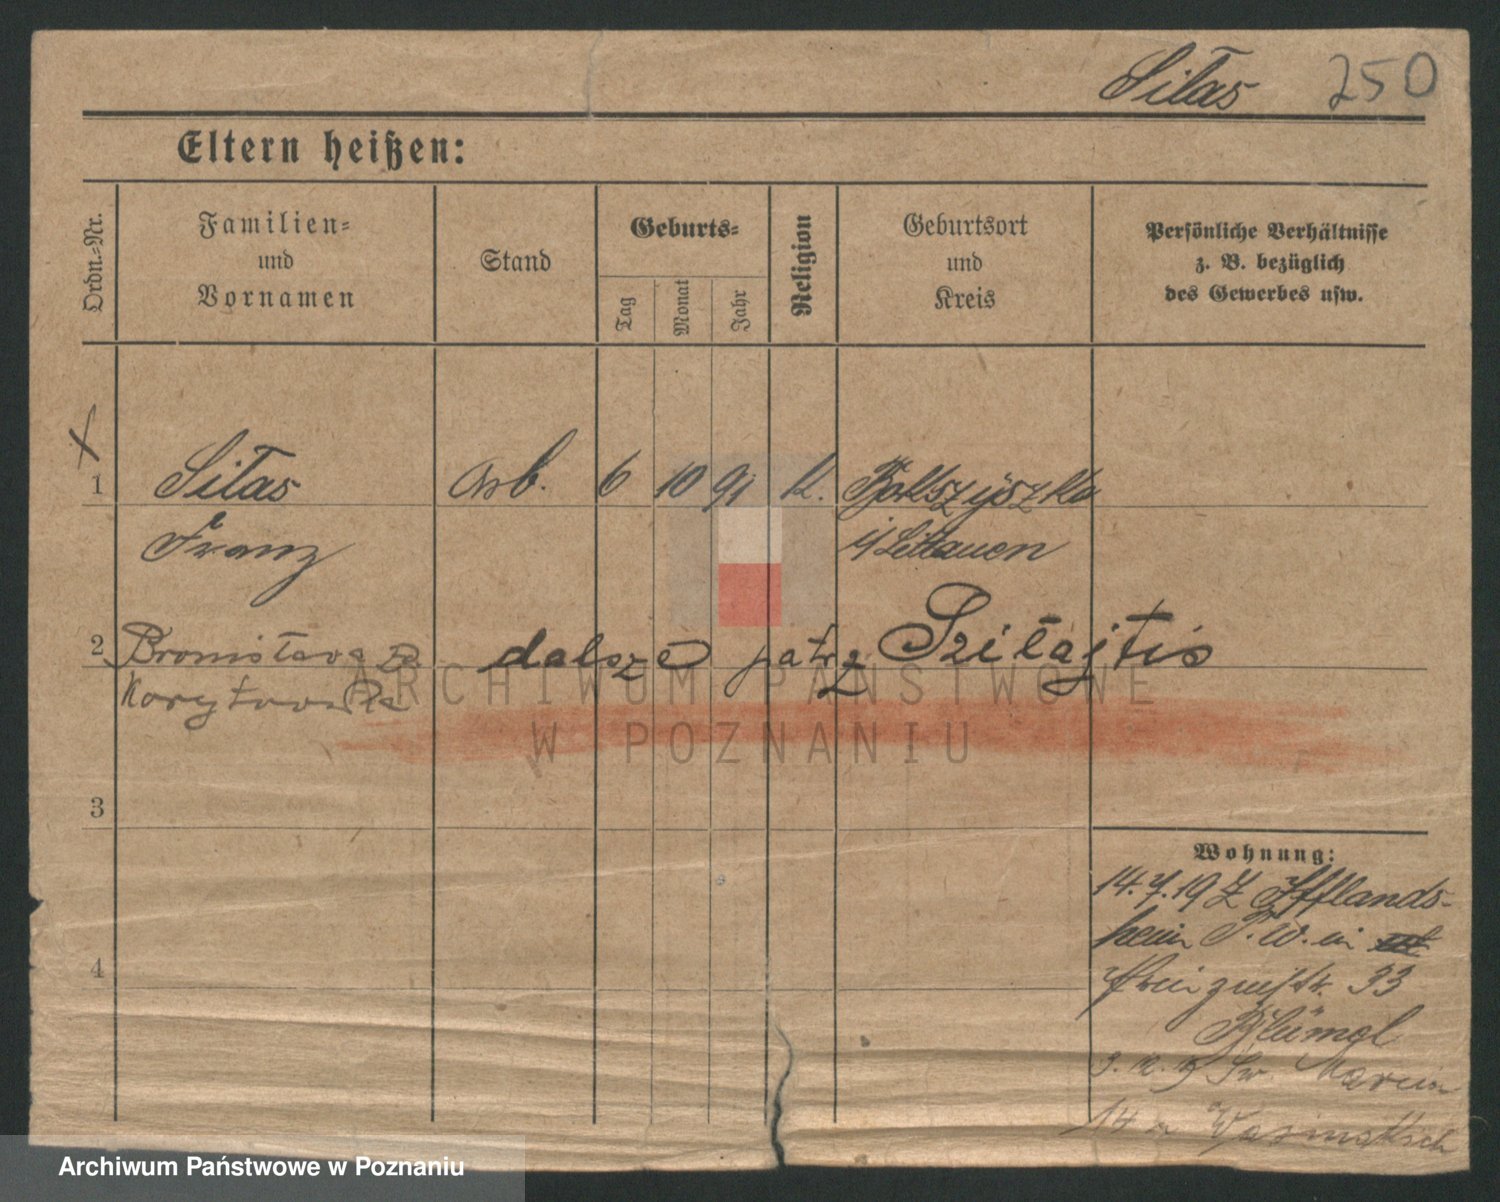 Silas 250
Eltern heißen:
Ordn.-Nr.
Familien-
und
Vornamen
Stand
Geburts-
Tag
Monat
Jahr
Religion
Geburtsort
und
Kreis
Persönliche Verhältnisse
z. B. bezüglich
des Gewerbes usw.
1 Silas Arb. 6 10 91 k.
Franz i/ Littauen
2 Bronisława
dalsze patrz Szilajtis
3
4
Wohnung:
14. 7. 19 Z
heim P. W. in
33
Blümel
3. 12. 19 Św. Marcin
14
ARCHIWUM PAŃSTWOWE
W POZNANIU
Archiwum Państwowe w Poznaniu